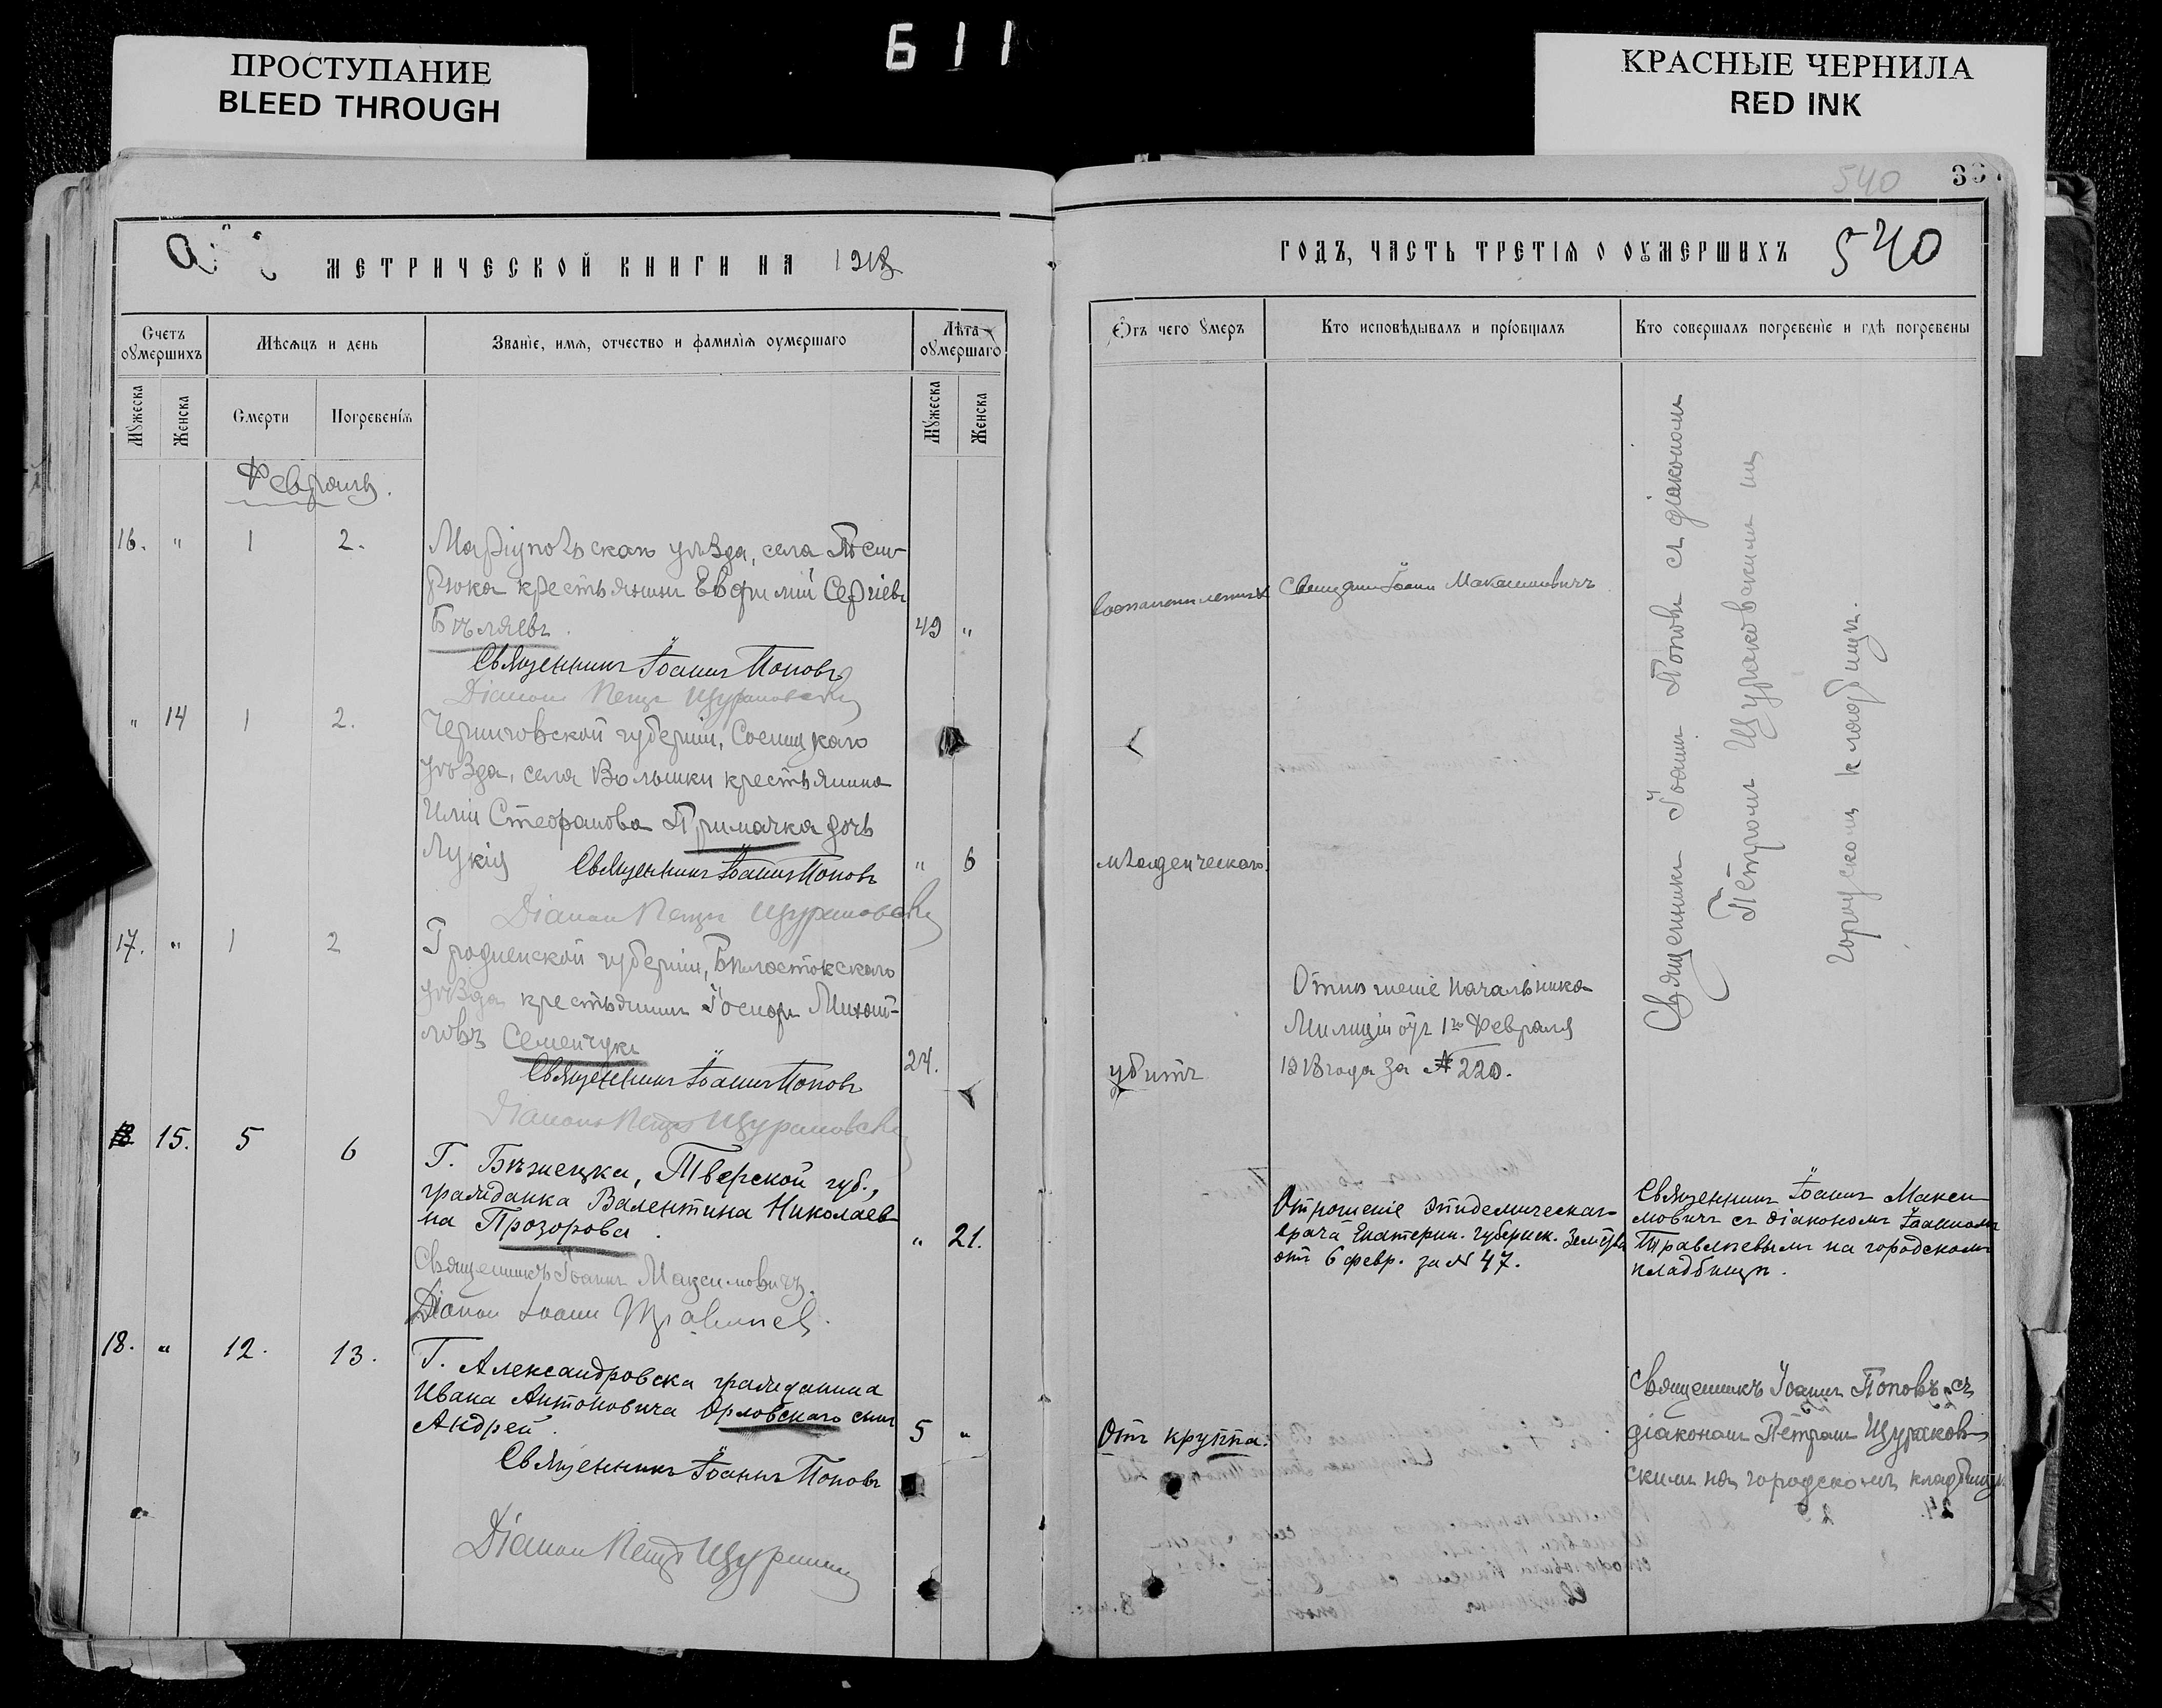 ПРОСТУПАНИЕ
BLEED THROUGH
611
КРАСНЫЕ ЧЕРНИЛА
RED INK
540
МЕТРИЧЕСКОЙ КНИГИ НА 1918
ГОДЪ, ЧАСТЬ ТРЕТІЯ О ОУМЕРШИХЪ
540
Счетъ оумершихъ
Мѣсяцъ и день
Званіе, имя, отчество и фамилія оумершаго
Лѣта оумершаго
Мужеска
Женска
Смерти
Погребенія
Мужеска
Женска
Отъ чего умеръ
Кто исповѣдывалъ и пріобщалъ
Кто совершалъ погребеніе и гдѣ погребены
Февраль.
16. " 1 2.
Маріупольскаго уѣзда, села
крестьянинъ Евфимій Сергіевъ
Бѣляевъ. 49 "
Священникъ Іоаннъ Поповъ
Діаконъ Петръ Щураковскій
Священникъ Іоаннъ Максимовичъ
" 14 1 2.
Черниговской губерніи, Сосницкаго
уѣзда, села Волынки крестьянина
Иліи Стефанова Примачка дочь
Лукія " 6
Священникъ Іоаннъ Поповъ
Діаконъ Петръ Щураковскій
младенческаго.
17. " 1 2
Гродненской губерніи, Бѣлостокскаго
уѣзда крестьянинъ Іосифъ Михаи-
ловъ Семенчукъ 24.
Священникъ Іоаннъ Поповъ
Діаконъ Петръ Щураковскій
убитъ
Отношеніе Начальника
Милиціи отъ 1го Февраля
1918 года за № 220.
Священникъ Іоаннъ Поповъ съ діакономъ
Петромъ Щураковскимъ на
городскомъ кладбищѣ.
15. 5 6
Г. Бѣжецка, Тверской губ.,
гражданка Валентина Николаев-
на Прозорова. " 21.
Священникъ Іоаннъ Максимовичъ.
Діаконъ Іоаннъ Травлѣевъ.
Отношеніе эпидемическаго
врача Екатерин. Губернск. Земства
отъ 6 февр. за № 47.
Священникъ Іоаннъ Макси-
мовичъ съ діакономъ Іоанномъ
Травлѣевымъ на городскомъ
кладбищѣ.
18. " 12. 13.
Г. Александровска гражданина
Ивана Антоновича Орловскаго сынъ
Андрей. 5 "
Священникъ Іоаннъ Поповъ
Діаконъ Петръ
Отъ круппа.
Священникъ Іоаннъ Поповъ съ
діакономъ Петромъ Щураков-
скимъ на городскомъ кладбищѣ.